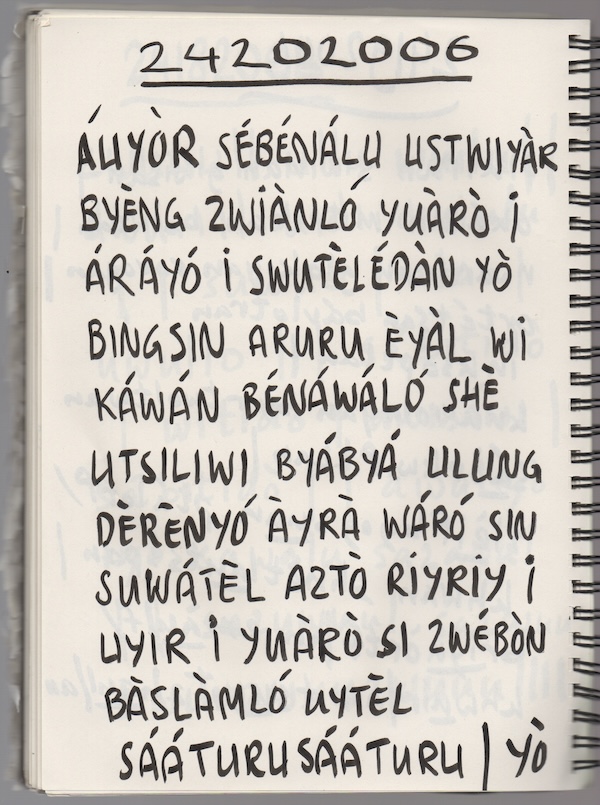 24202006
ÁUYÒR SÉBÉNÁLU USTWIYÀR
BYÈNG ZWIÀNLÓ YUÀRÒ i
ÁRÁYÓ i SWUTÈLÉDÀN YÒ
BINGSIN ARURU ÈYÀL Wi
KÁWÁN BÉNÁWÁLÓ SHÈ
UTSILIWI BYÁBYÁ ULUNG
DÈRÈNYÓ ÀYRÀ WÁRÓ SIN
SUWÁTÈL AZTÒ RIYRIY i
UYIR i YUÀRÒ SI ZWÉBÒN
BÀSLÀMLÓ UYTÈL
SÁÁTURUSÁÁTURU | YÒ